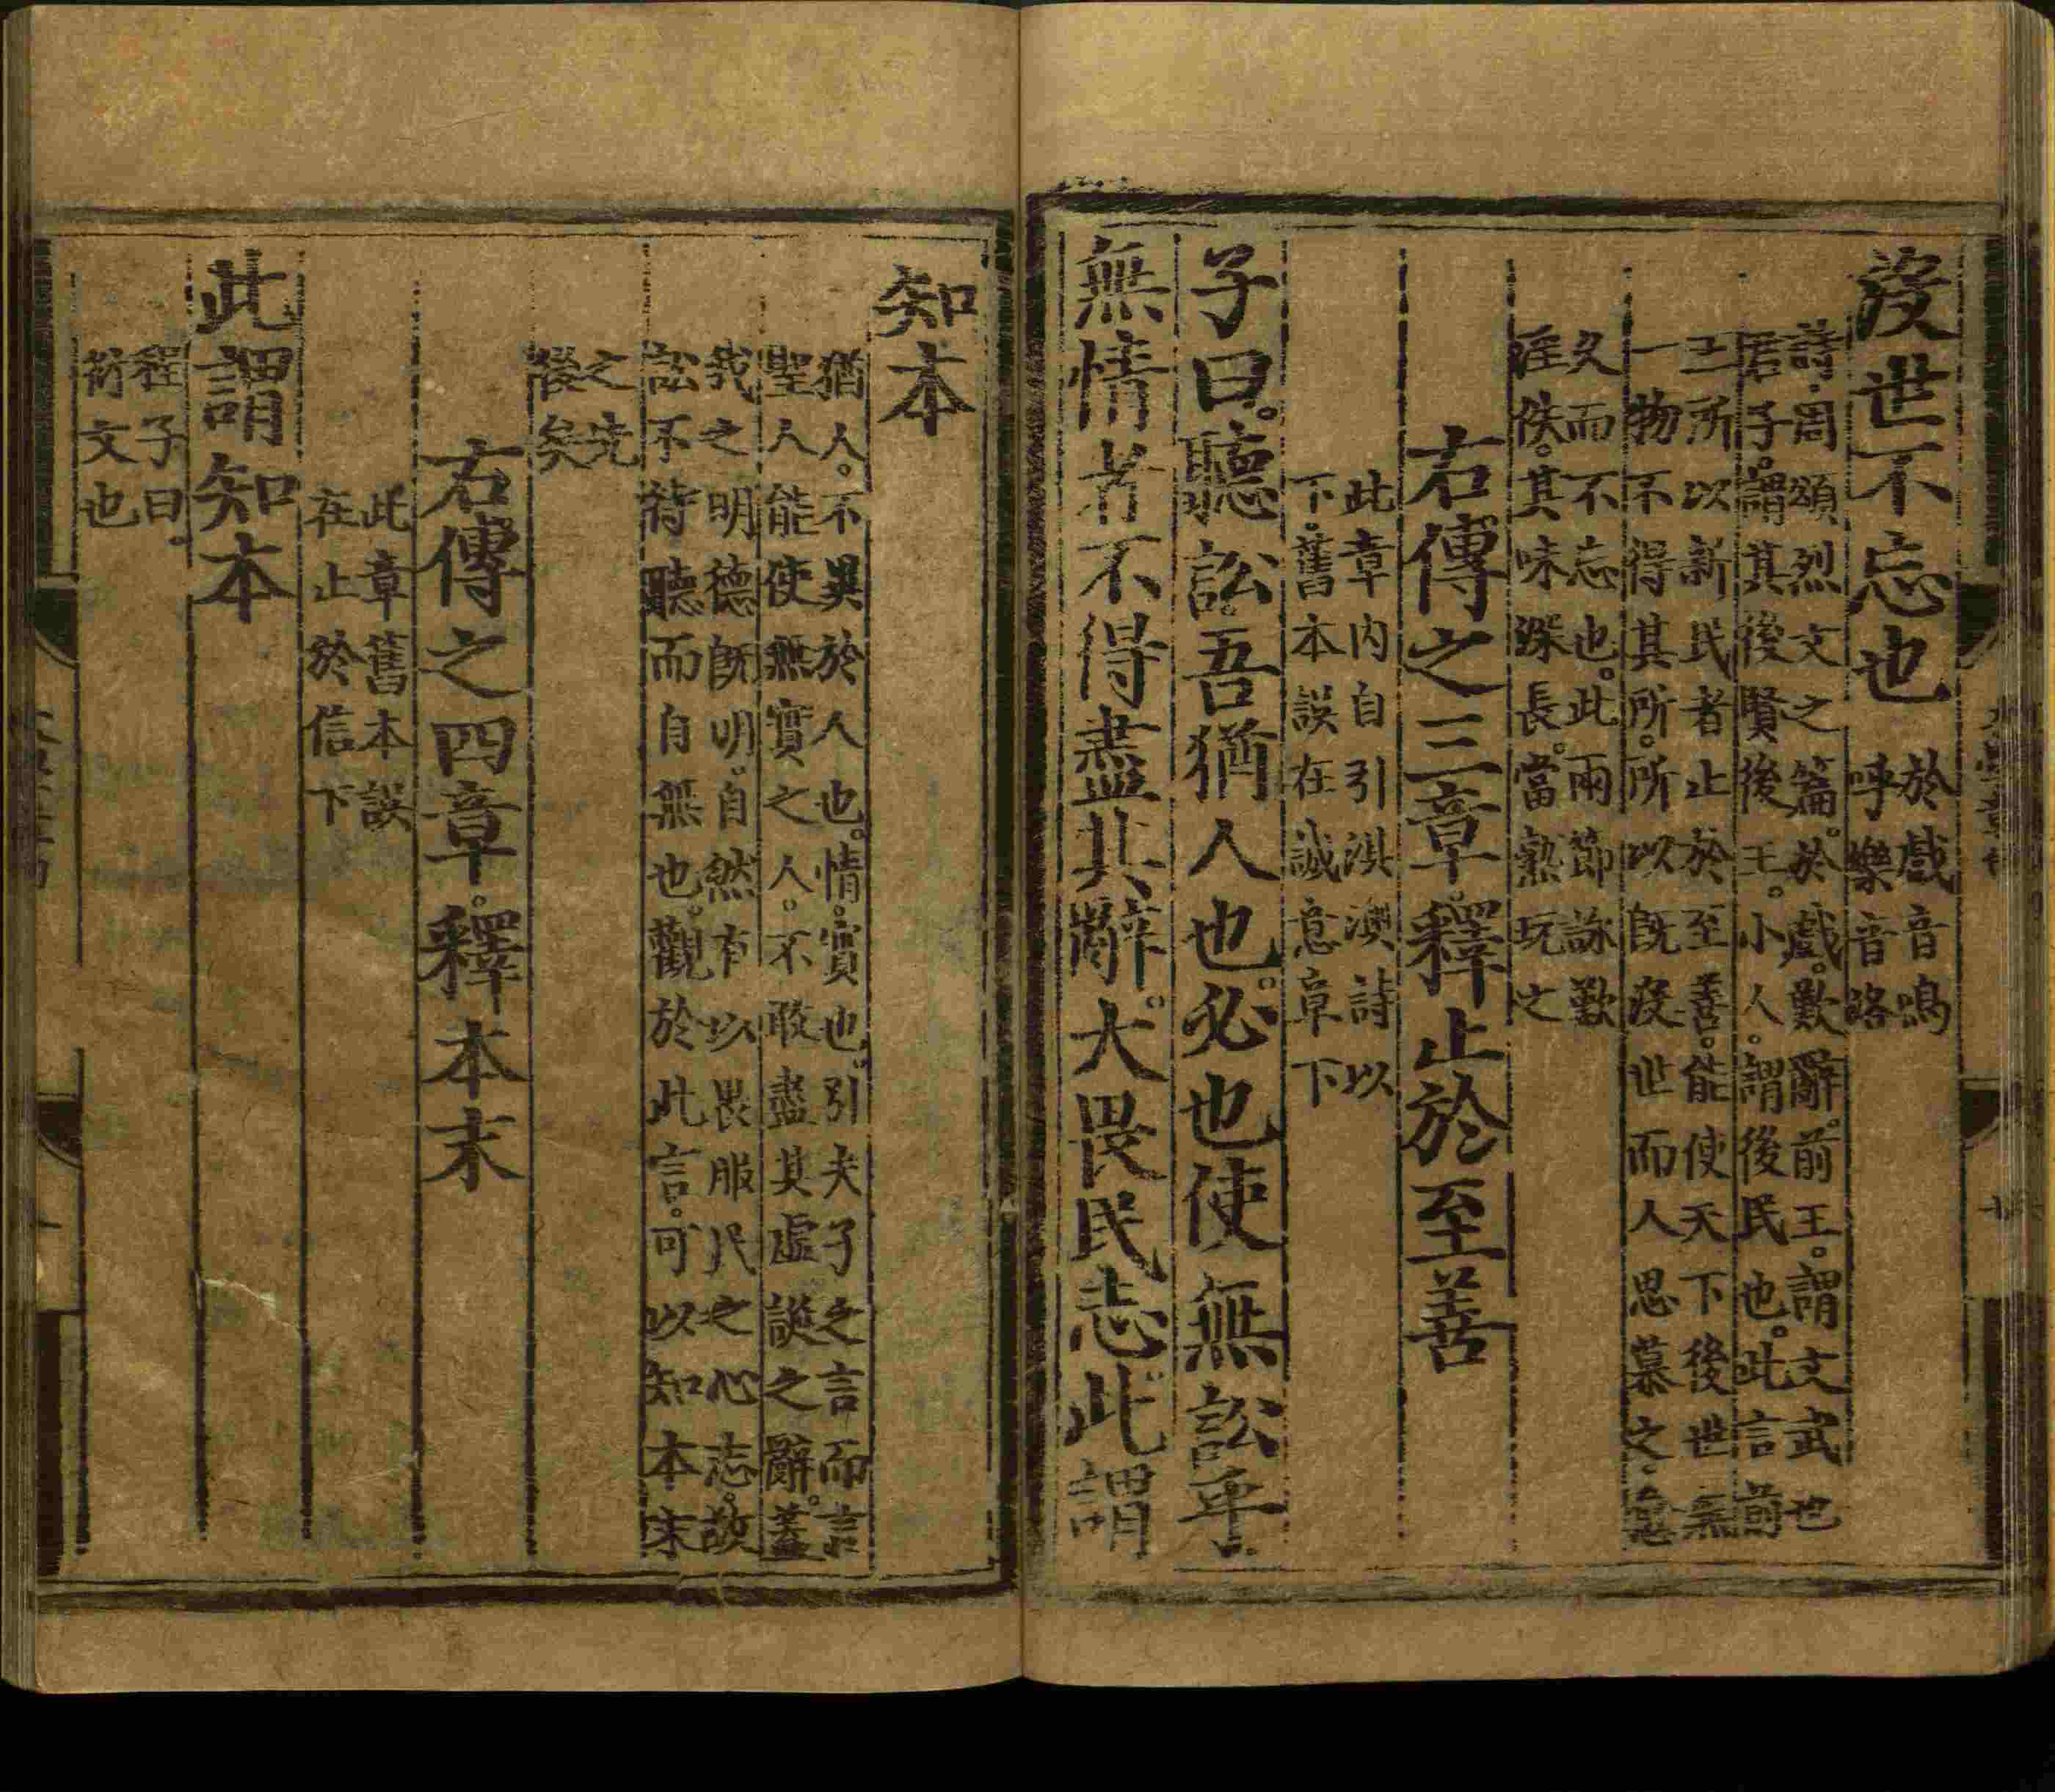 沒世不忘也於戲音嗚
呼樂音洛
詩周頌烈文之篇。於戲。歎辭。前王。謂文武也
君子。謂其後賢後王。小人。謂後民也。此言前
王所以新民者止於至善。能使天下後世無
一物不得其所。所以既沒世而人思慕之。愈
久而不忘也。此兩節詠歎
淫佚。其味深長。當熟玩之
右傳之三章。釋止於至善
此章內自引淇澳詩以
下。舊本誤在誠意章下
子曰。聽訟吾猶人也。必也使無訟乎
無情者不得盡其辭。大畏民志此謂
知本
猶人。不異於人也。情。實也。引夫子之言而言
聖人能使無實之人。不敢盡其虛誕之辭。蓋
我之明德旣明。自然有以畏服民之心志。故
訟不待聽而自無也。觀於此言。可以知本末
之先
後矣
右傳之四章。釋本末
此章舊本誤
在止於信下
此謂知本
程子曰。
衍文也